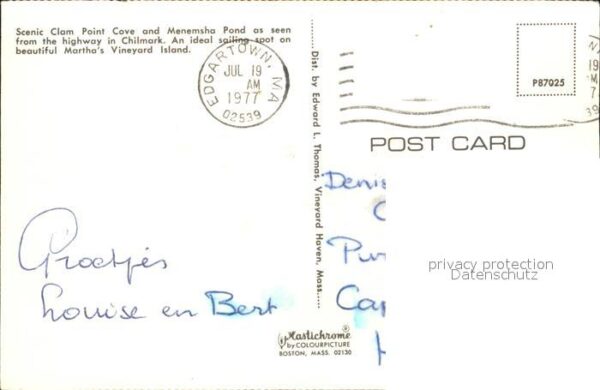 Scenic Clam Point Cove and Menemsha Pond as seen
from the highway in Chilmark. An ideal sailing spot on
beautiful Martha's Vineyard Island.
EDGARTOWN, MA
JUL 19
AM
1977
02539
Dist. by Edward L. Thomas, Vineyard Haven, Mass.
P87025
POST CARD
Groetjes
Louise en Bert
Denis
Pur
Cap
privacy protection
Datenschutz
Plastichrome®
by COLOURPICTURE
BOSTON, MASS. 02130